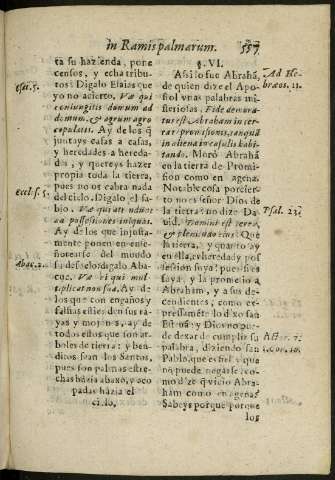 in Ramis palmarum. 557
ta su hazienda, pone
censos, y echa tribu-
tos? Digalo Esaias que
yo no acierto. Væ qui
coniungitis domum ad
domum, & agrum agro
copulatis. Ay de los q̃
juntays casas a casas,
y heredades a hereda-
des, y quereys hazer
propia toda la tierra,
pues no os cabra nada
del cielo. Digalo el sa-
bio.
Ay de los que injusta-
mente ponen en ense-
ñorearse del mundo
digalo Aba-
cuc. Væ ei qui mul-
tiplicat non sua. Ay de
los que con engaños y
falsias estiē den sus ra-
yas y mojones, ay de
todos estos que son ar-
boles de tierra: y ben-
ditos sean los Santos,
pues son palmas estre-
chas házia abaxo, y aco
padas házia el
cielo.
Esai. 5.
Eccl. 5.
Abac. 2.
§. VI.
Assi lo fue Abrahã,
de quien dize el Apo-
stol vnas palabras mi-
steriosas. Fide demora-
tus est Abraham in ter-
ra repromissionis, tanquã
in aliena in casulis habi-
tando. Morò Abrahã
en la tierra de Promis-
sion como en agena.
Notable cosa por cier-
to no es señor Dios de
la tierra? no dize Da-
uid, Domini est terra,
& plenitudo eius? Que
la tierra, y quanto ay
en ella, es heredad y pos
session suya? pues si es
suya, y la prometio a
Abraham, y a sus de-
cendientes; como ex-
pressamēte lo dixo san
Esteuã: y Dios no pue-
de dexar de cumplir su
palabra, diziendo san
Pablo, que es fiel y que
no puede negarse: co-
mo dize q̃ viuio Abra-
ham como en agena?
Sabeys porque? porque
los
Ad He-
bræos. 11.
Psal. 23.
Actor. 7.
1. Cor. 10.